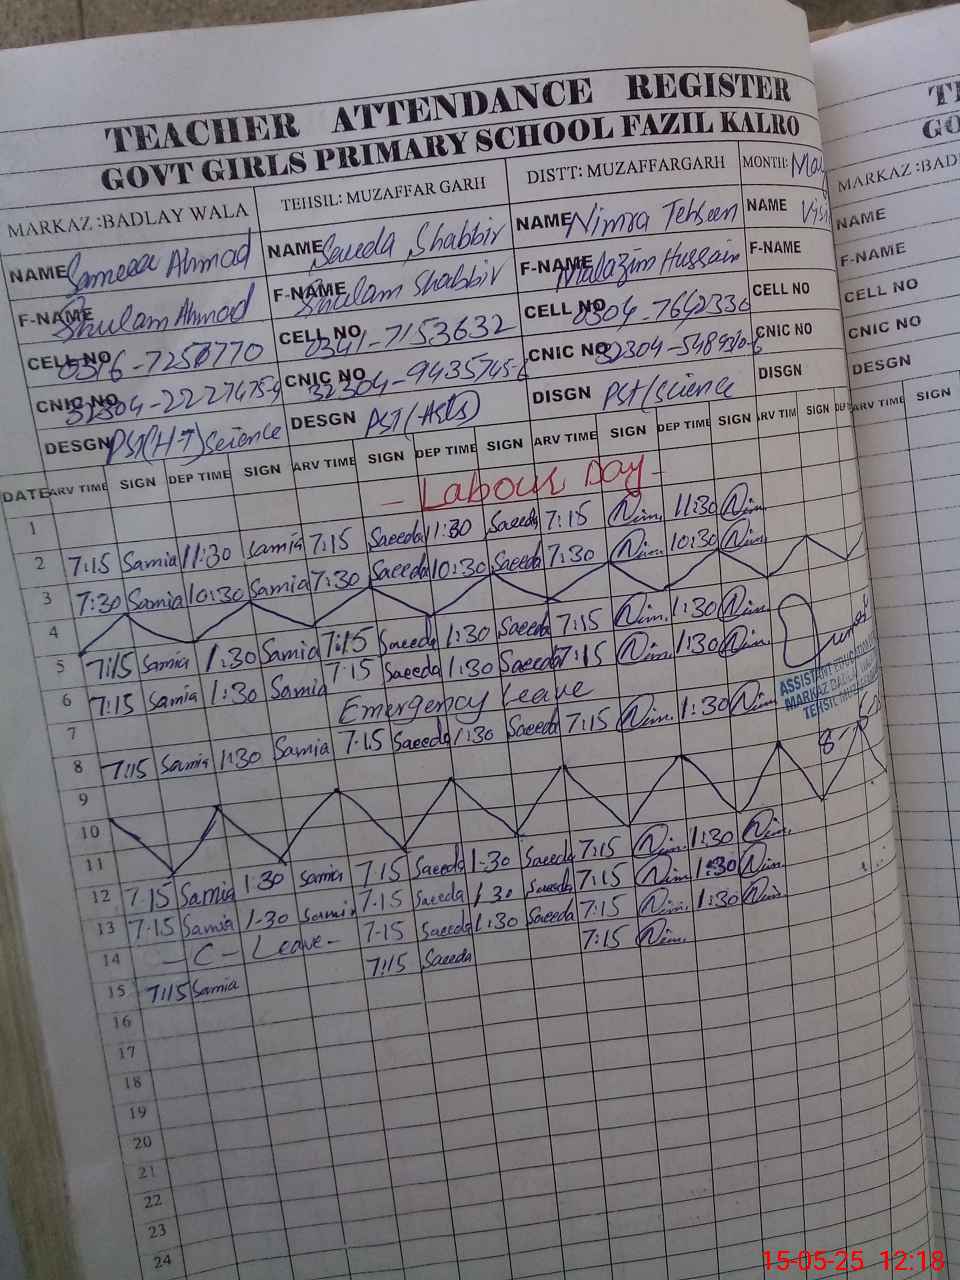 TEACHER ATTENDANCE REGISTER
GOVT GIRLS PRIMARY SCHOOL FAZIL KALRO
MARKAZ :BADLAY WALA TEHSIL: MUZAFFAR GARH DISTT: MUZAFFARGARH MONTH:
NAME Ahmad NAME Saeeda Shabbir NAME Nimra Tehseen NAME
F-NAME Ghulam Ahmad F-NAME Ghulam Shabbir F-NAME Hussain F-NAME
CELL NO CELL NO 0341-7153632 CELL NO 0304-7642330 CELL NO
CNIC NO CNIC NO CNIC NO CNIC NO
DESGN PST(H-T) Science DESGN PST/(Arts) DISGN PST/Science DISGN
DATE ARV TIME SIGN DEP TIME SIGN ARV TIME SIGN DEP TIME SIGN ARV TIME SIGN DEP TIME SIGN ARV TIME SIGN
1 - Labour Day -
2 7:15 Samia 11:30 Samia 7:15 Saeeda 11:30 Saeeda 7:15 Nim. 11:30 Nim.
3 7:30 Samia 10:30 Samia 7:30 Saeeda 10:30 Saeeda 7:30 Nim. 10:30 Nim.
4
5 7:15 Samia 1:30 Samia 7:15 Saeeda 1:30 Saeeda 7:15 Nim. 1:30 Nim.
6 7:15 Samia 1:30 Samia 7:15 Saeeda 1:30 Saeeda 7:15 Nim. 1:30 Nim.
7 Emergency Leave
8 7:15 Samia 1:30 Samia 7:15 Saeeda 1:30 Saeeda 7:15 Nim. 1:30 Nim.
ASSISTANT EDUCATION
MARKAZ
TEHSIL
9
10
11
12 7:15 Samia 1:30 Samia 7:15 Saeeda 1:30 Saeeda 7:15 Nim. 1:30 Nim.
13 7:15 Samia 1:30 Samia 7:15 Saeeda 1:30 Saeeda 7:15 Nim. 1:30 Nim.
14 - C - Leave - 7:15 Saeeda 1:30 Saeeda 7:15 Nim. 1:30 Nim.
15 7:15 Samia 7:15 Saeeda 7:15 Nim.
16
17
18
19
20
21
22
23
24
MARKAZ :BADL
NAME
F-NAME
CELL NO
CNIC NO
DESGN
ARV TIME SIGN
15-05-25 12:18